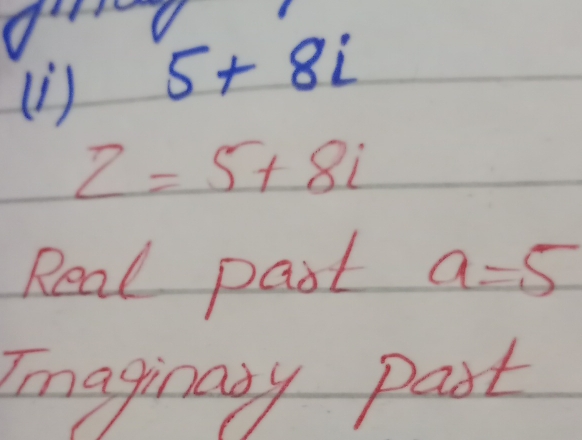 (i) 5+ 8i
Z = 5+ 8i
Real part a=5
Imaginary part